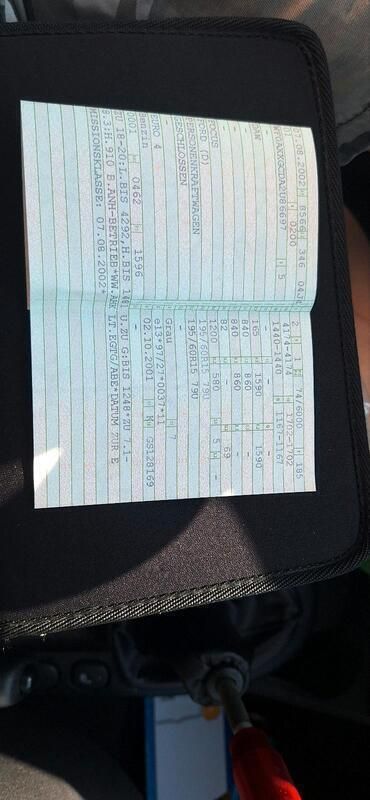 07.08.2002 8566 346
0200
5
DAW
FOCUS
FORD (D)
PERSONENKRAFTWAGEN
GESCHLOSSEN
-
EURO 4
Benzin
0001 0462 1596
2 1 74/6000 185
4174-4174 1702-1702
1440-1440 1167-1167
165 1590 1590
840 860 -
840 860 -
82 69
1200 580 5 -
195/60R15 790
195/60R15 790
-
Grau 7
e13*97/27*0037*11
02.10.2001 K GS128169
ZU 18-20:L.BIS 4292,H.BIS U.ZU G:BIS 1248*ZU 7.1-
8.3:H.910 B.ANH-BETRIEB*WW.AH LT.EGTG/ABE*DATUM ZUR E
MISSIONSKLASSE: 07.08.2002*